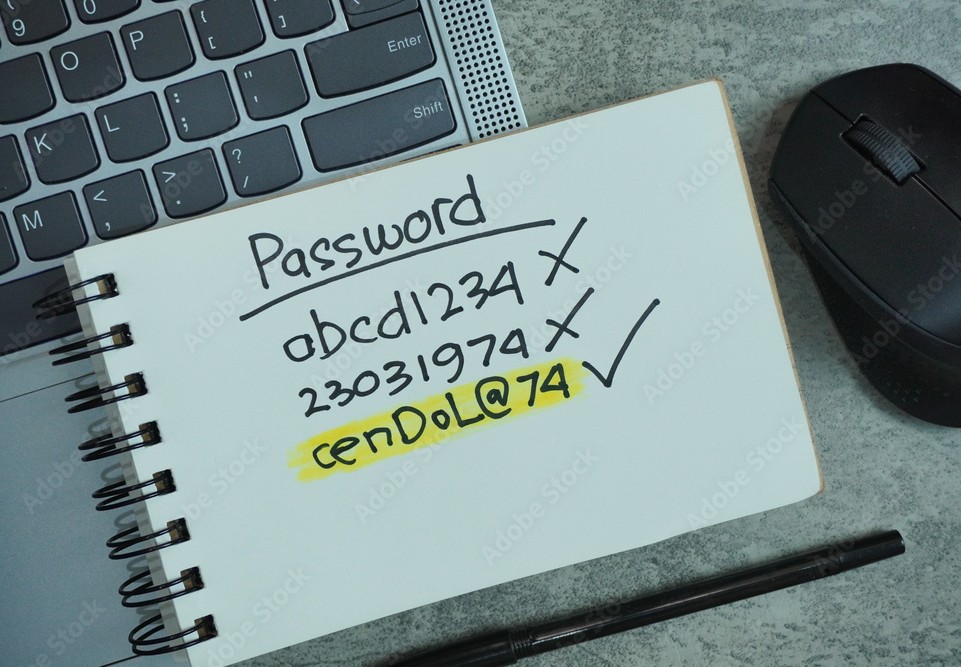 9 0 { [ } ]
O P Enter
K L : ; " ' Shift
M < , > . ? /
Password
abcd1234 X
23031974 X
cenDoL@74 ✓
Adobe Stock